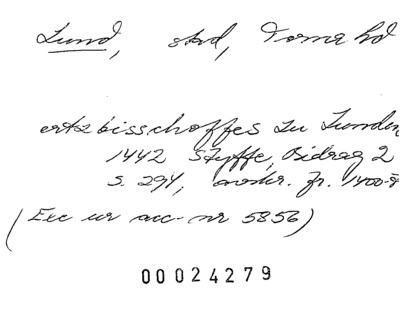 Lund, stad, Torna hd
ertzbisschoffes zu Lunden
1442 Styffe, Bidrag 2
s. 294, avskr. fr. 1400-t
(Exc ur acc-nr 5856)
00024279